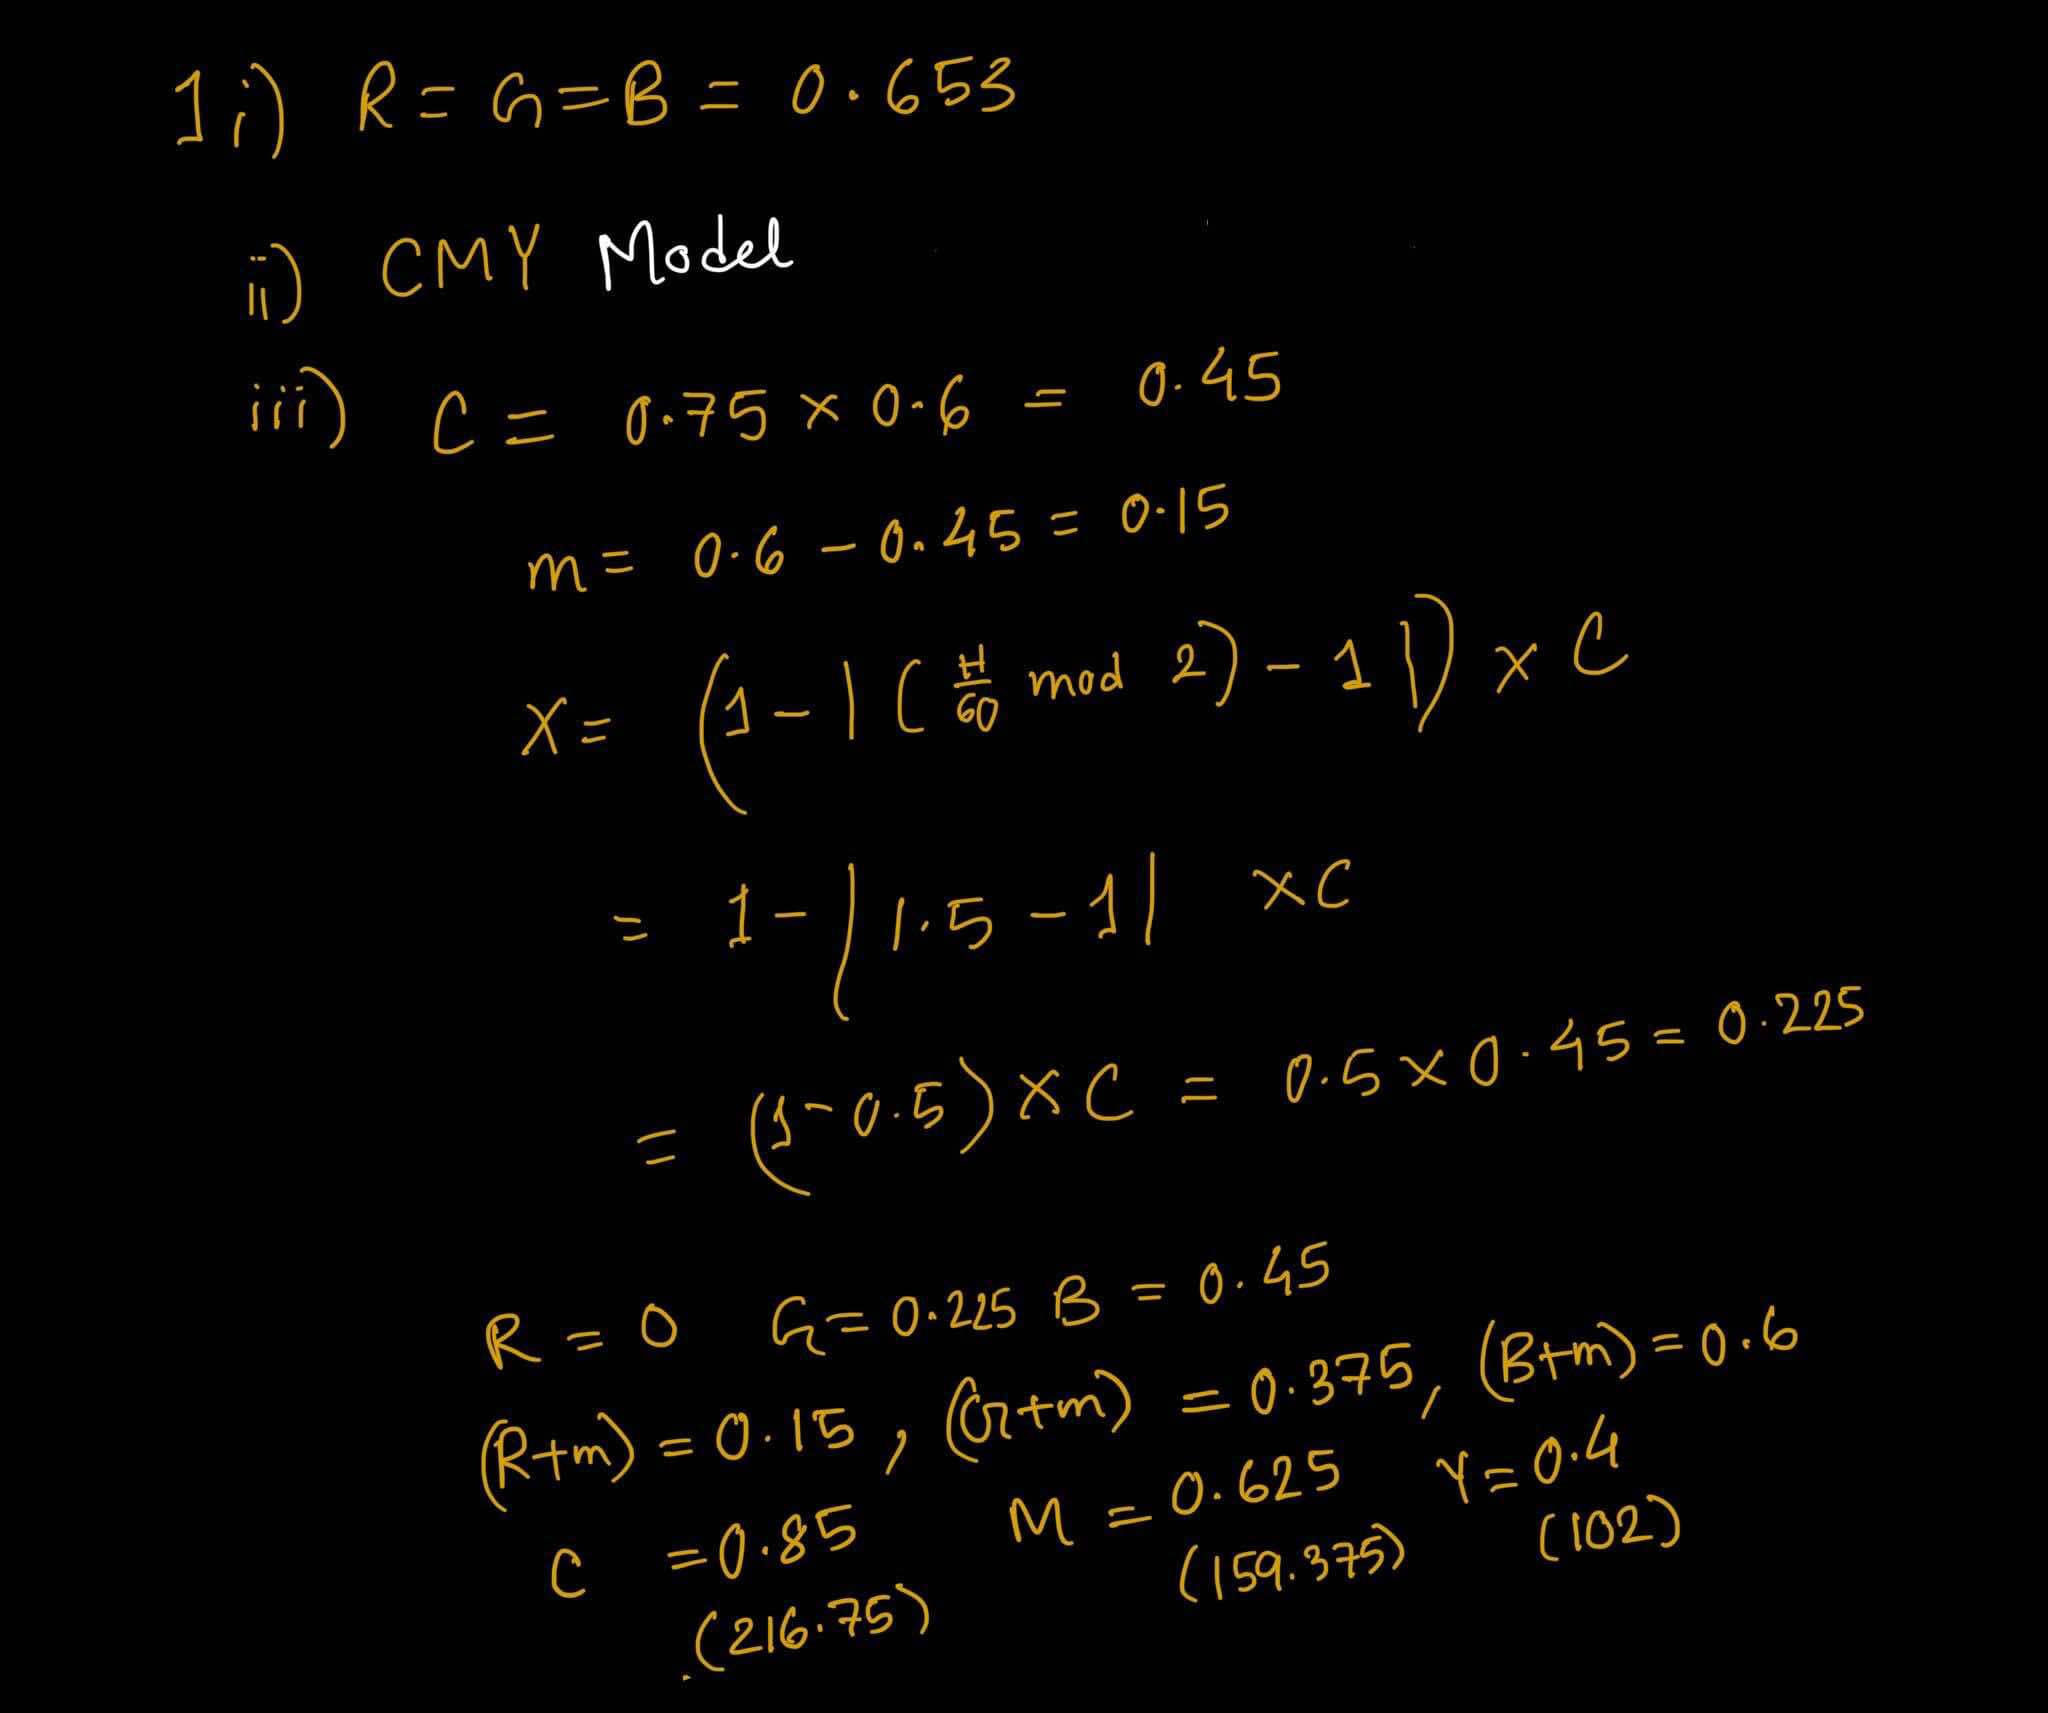 1 i) R = G = B = 0.653
ii) CMY Model
iii) C = 0.75 × 0.6 = 0.45
m = 0.6 - 0.45 = 0.15
X = (1 - | (H/60 mod 2) - 1 |) × C
= 1 - | 1.5 - 1 | × C
= (1 - 0.5) × C = 0.5 × 0.45 = 0.225
R = 0 G = 0.225 B = 0.45
(R+m) = 0.15 , (G+m) = 0.375, (B+m) = 0.6
C = 0.85 M = 0.625 Y = 0.4
(216.75) (159.375) (102)